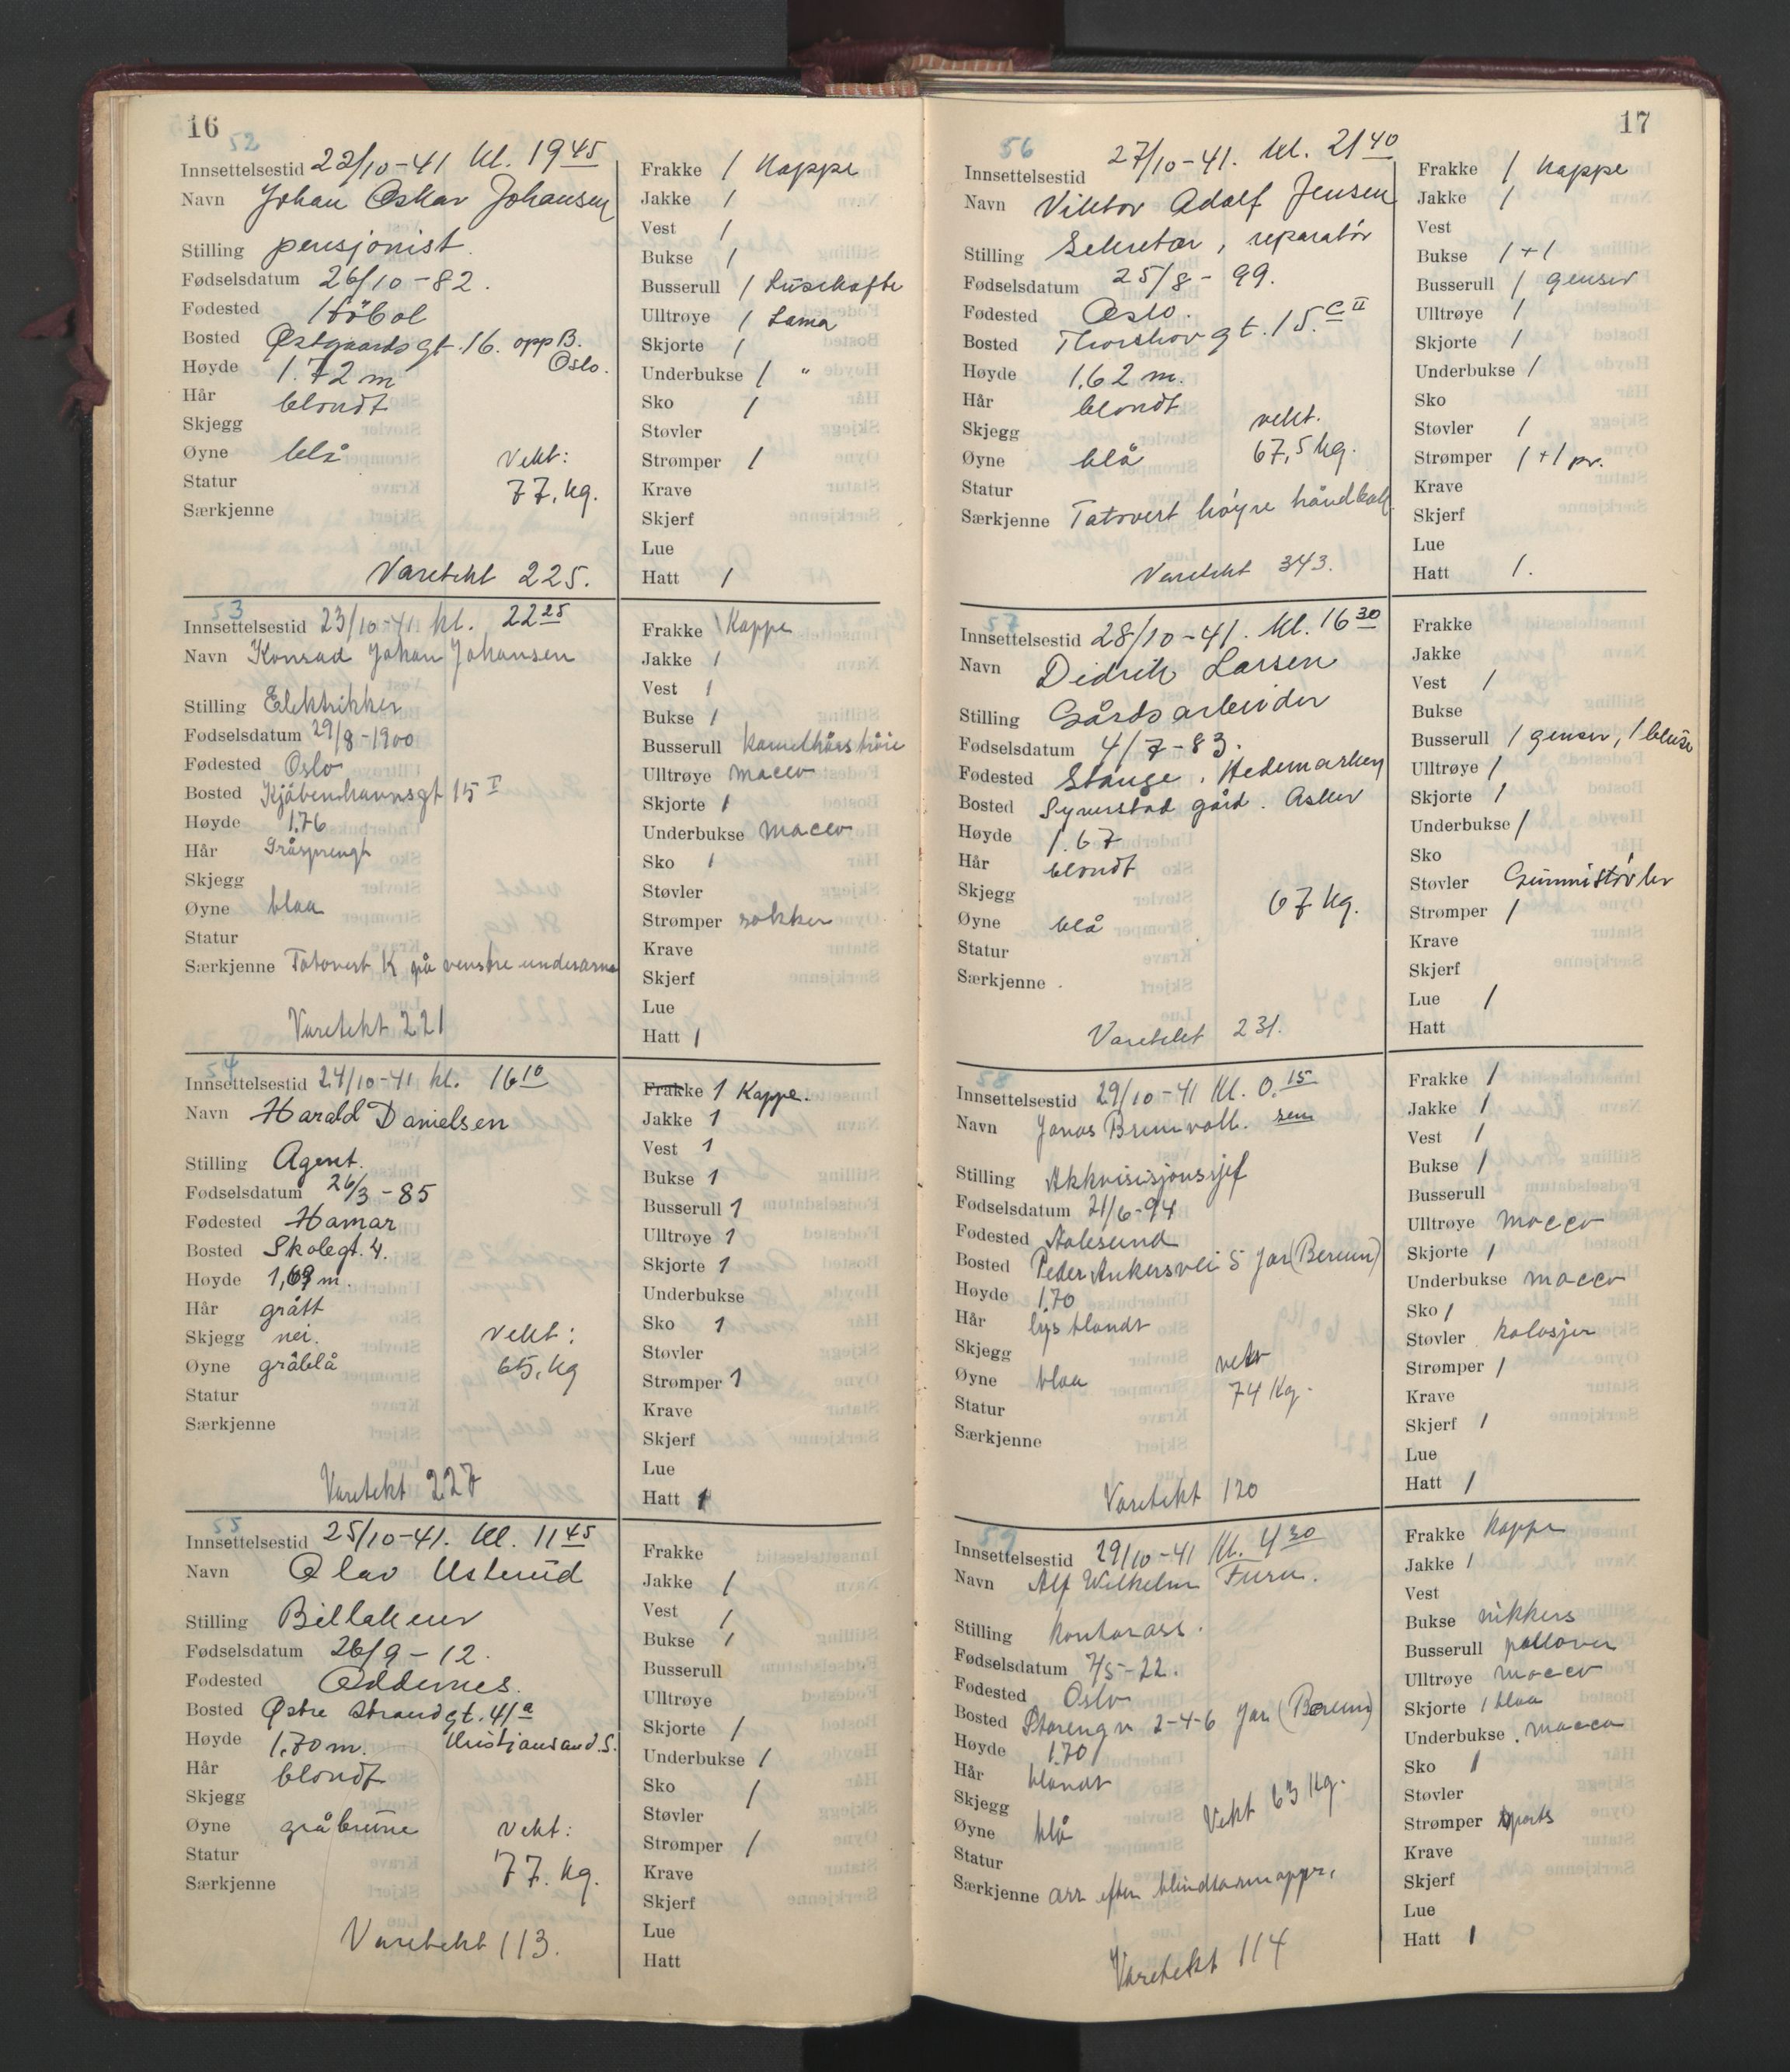 16
52
Innsettelsestid 22/10-41 kl. 19 45
Navn Johan Oskar Johansen
Stilling pensjonist.
Fødselsdatum 26/10-82.
Fødested Höbøl
Bosted Østgaardsgt. 16. opp B.
Oslo.
Høyde 1.72 m
Hår blondt
Skjegg
Øyne blå Vekt:
Statur 77, kg.
Særkjenne
Varetekt 225.
Frakke 1 Kappe
Jakke 1
Vest 1
Bukse 1
Busserull 1 Lusekofte
Ulltrøye 1 Lama
Skjorte 1
Underbukse 1 "
Sko 1
Støvler
Strømper 1
Krave
Skjerf
Lue
Hatt 1
53
Innsettelsestid 23/10-41 kl. 22 25
Navn Konrad Johan Johansen
Stilling Elektrikker
Fødselsdatum 29/8-1900
Fødested Oslo
Bosted Kjøbenhavnsgt 15 I
Høyde 1.76
Hår Gråsprengt
Skjegg
Øyne blaa
Statur
Særkjenne Tatovert K på venstre underarm
Varetekt 221
Frakke 1 Kappe
Jakke 1
Vest 1
Bukse 1
Busserull Kamelhårstrøie
Ulltrøye macco
Skjorte 1
Underbukse macco
Sko 1
Støvler
Strømper sokker
Krave
Skjerf
Lue
Hatt 1
54
Innsettelsestid 24/10-41 kl. 16 10
Navn Harald Danielsen
Stilling Agent.
Fødselsdatum 26/3-85
Fødested Hamar
Bosted Skolegt. 4.
Høyde 1,69 m.
Hår grått
Skjegg nei. Vekt:
Øyne gråblå 65, kg
Statur
Særkjenne
Varetekt 227
Frakke 1 Kappe.
Jakke 1
Vest 1
Bukse 1
Busserull 1
Ulltrøye 1
Skjorte 1
Underbukse
Sko 1
Støvler
Strømper 1
Krave
Skjerf
Lue
Hatt 1
55
Innsettelsestid 25/10-41. kl. 11 45
Navn Olav Usterud
Stilling Billakerer
Fødselsdatum 26/9-12.
Fødested Oddernes.
Bosted Østre Strandgt. 41 a
Høyde 1,70 m. Kristiansand.S.
Hår blondt
Skjegg
Øyne gråbrune Vekt:
Statur 77. kg.
Særkjenne
Varetekt 113.
Frakke
Jakke 1
Vest 1
Bukse 1
Busserull
Ulltrøye
Skjorte 1
Underbukse 1
Sko 1
Støvler
Strømper 1
Krave
Skjerf
Lue
Hatt
17
56
Innsettelsestid 27/10-41. kl. 21 40
Navn Viktor Adolf Jensen
Stilling Sekretær, reparatör
Fødselsdatum 25/8-99.
Fødested Oslo.
Bosted Thorshovgt. 15. C II
Høyde 1.62 m.
Hår blondt vekt.
Skjegg 67,5 kg.
Øyne blå
Statur
Særkjenne Tatovert höyre håndbak
Varetekt 343.
Frakke 1 Kappe
Jakke 1
Vest
Bukse 1+1
Busserull 1 genser
Ulltrøye 1
Skjorte 1
Underbukse 1
Sko
Støvler 1
Strømper 1+1 pr.
Krave
Skjerf
Lue
Hatt 1.
57
Innsettelsestid 28/10-41. kl. 16 30
Navn Didrik Larsen
Stilling Gårdsarbeider
Fødselsdatum 4/7-83.
Fødested Stange. Hedemarken
Bosted Synerstad gård. Asker
Høyde 1.67
Hår blondt
Skjegg 67 kg.
Øyne blå
Statur
Særkjenne
Varetekt 231.
Frakke
Jakke
Vest 1
Bukse
Busserull 1 genser, 1 bluse
Ulltrøye 1
Skjorte 1
Underbukse 1
Sko
Støvler Gummistövler
Strømper 1
Krave
Skjerf
Lue 1
Hatt
58
Innsettelsestid 29/10-41 Kl. 0.15
Navn Jonas Brunvoll. sen
Stilling Akkvisisjonssjef
Fødselsdatum 21/6-94
Fødested Aalesund
Bosted Peder Ankersvei 5 Jar (Berum)
Høyde 1.70
Hår lys blondt
Skjegg vekt
Øyne blaa 74 Kg.
Statur
Særkjenne
Varetekt 120
Frakke 1
Jakke 1
Vest 1
Bukse 1
Busserull
Ulltrøye macco
Skjorte 1
Underbukse macco
Sko 1
Støvler kalosjer
Strømper 1
Krave
Skjerf 1
Lue
Hatt 1
59
Innsettelsestid 29/10-41 Kl. 4 30
Navn Alf Wilhelm Furu.
Stilling Kontorass.
Fødselsdatum 7/5-22.
Fødested Oslo
Bosted Storengv 2-4-6 Jar (Berum)
Høyde 1.70
Hår blondt
Skjegg Vekt 63 Kg.
Øyne blå
Statur
Særkjenne arr efter blindtarmoppr.
Varetekt 114
Frakke Kappe
Jakke 1
Vest
Bukse nikkers
Busserull pullover
Ulltrøye macco
Skjorte 1 blaa
Underbukse macco
Sko 1
Støvler
Strømper sports
Krave
Skjerf
Lue
Hatt 1